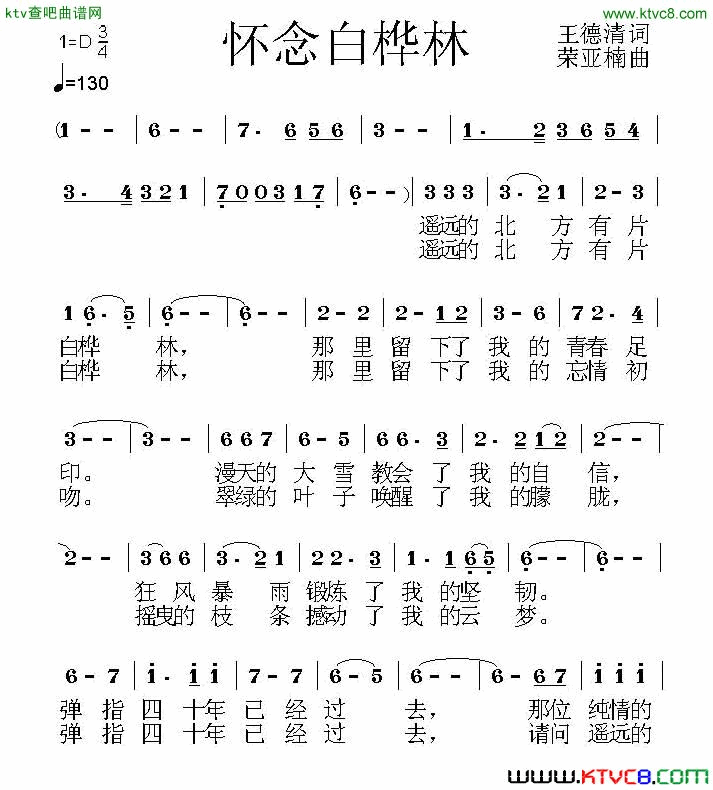 ktv查吧曲谱网
www.ktvc8.com
1=D 3/4
怀念白桦林
王德清词
荣亚楠曲
♩=130
(1 - - | 6 - - | 7· 6 5 6 | 3 - - | 1· 2 3 6 5 4 |
3· 4 3 2 1 | 7 0 0 3 1 7 | 6 - - ) | 3 3 3 | 3· 2 1 | 2 - 3 |
遥远的 北 方 有 片
遥远的 北 方 有 片
1 6· 5 | 6 - - | 6 - - | 2 - 2 | 2 - 1 2 | 3 - 6 | 7 2· 4 |
白桦 林， 那 里 留 下了 我 的 青春 足
白桦 林， 那 里 留 下了 我 的 忘情 初
3 - - | 3 - - | 6 6 7 | 6 - 5 | 6 6· 3 | 2· 2 | 2 1 2 | 2 - - |
印。 漫天的 大 雪 教会 了 我 的 自 信，
吻。 翠绿的 叶 子 唤醒 了 我 的 朦 胧，
2 - - | 3 6 6 | 3· 2 1 | 2 2· 3 | 1· 1 6 5 | 6 - - | 6 - - |
狂 风 暴 雨 锻炼 了 我 的 坚 韧。
摇曳的 枝 条 撼动 了 我 的 云 梦。
6 - 7 | 1· 1 1 | 7 - 7 | 6 - 5 | 6 - - | 6 - 6 7 | 1 1 1 |
弹 指 四 十年 已 经 过 去， 那位 纯情的
弹 指 四 十年 已 经 过 去， 请问 遥远的
www.KTVC8.com